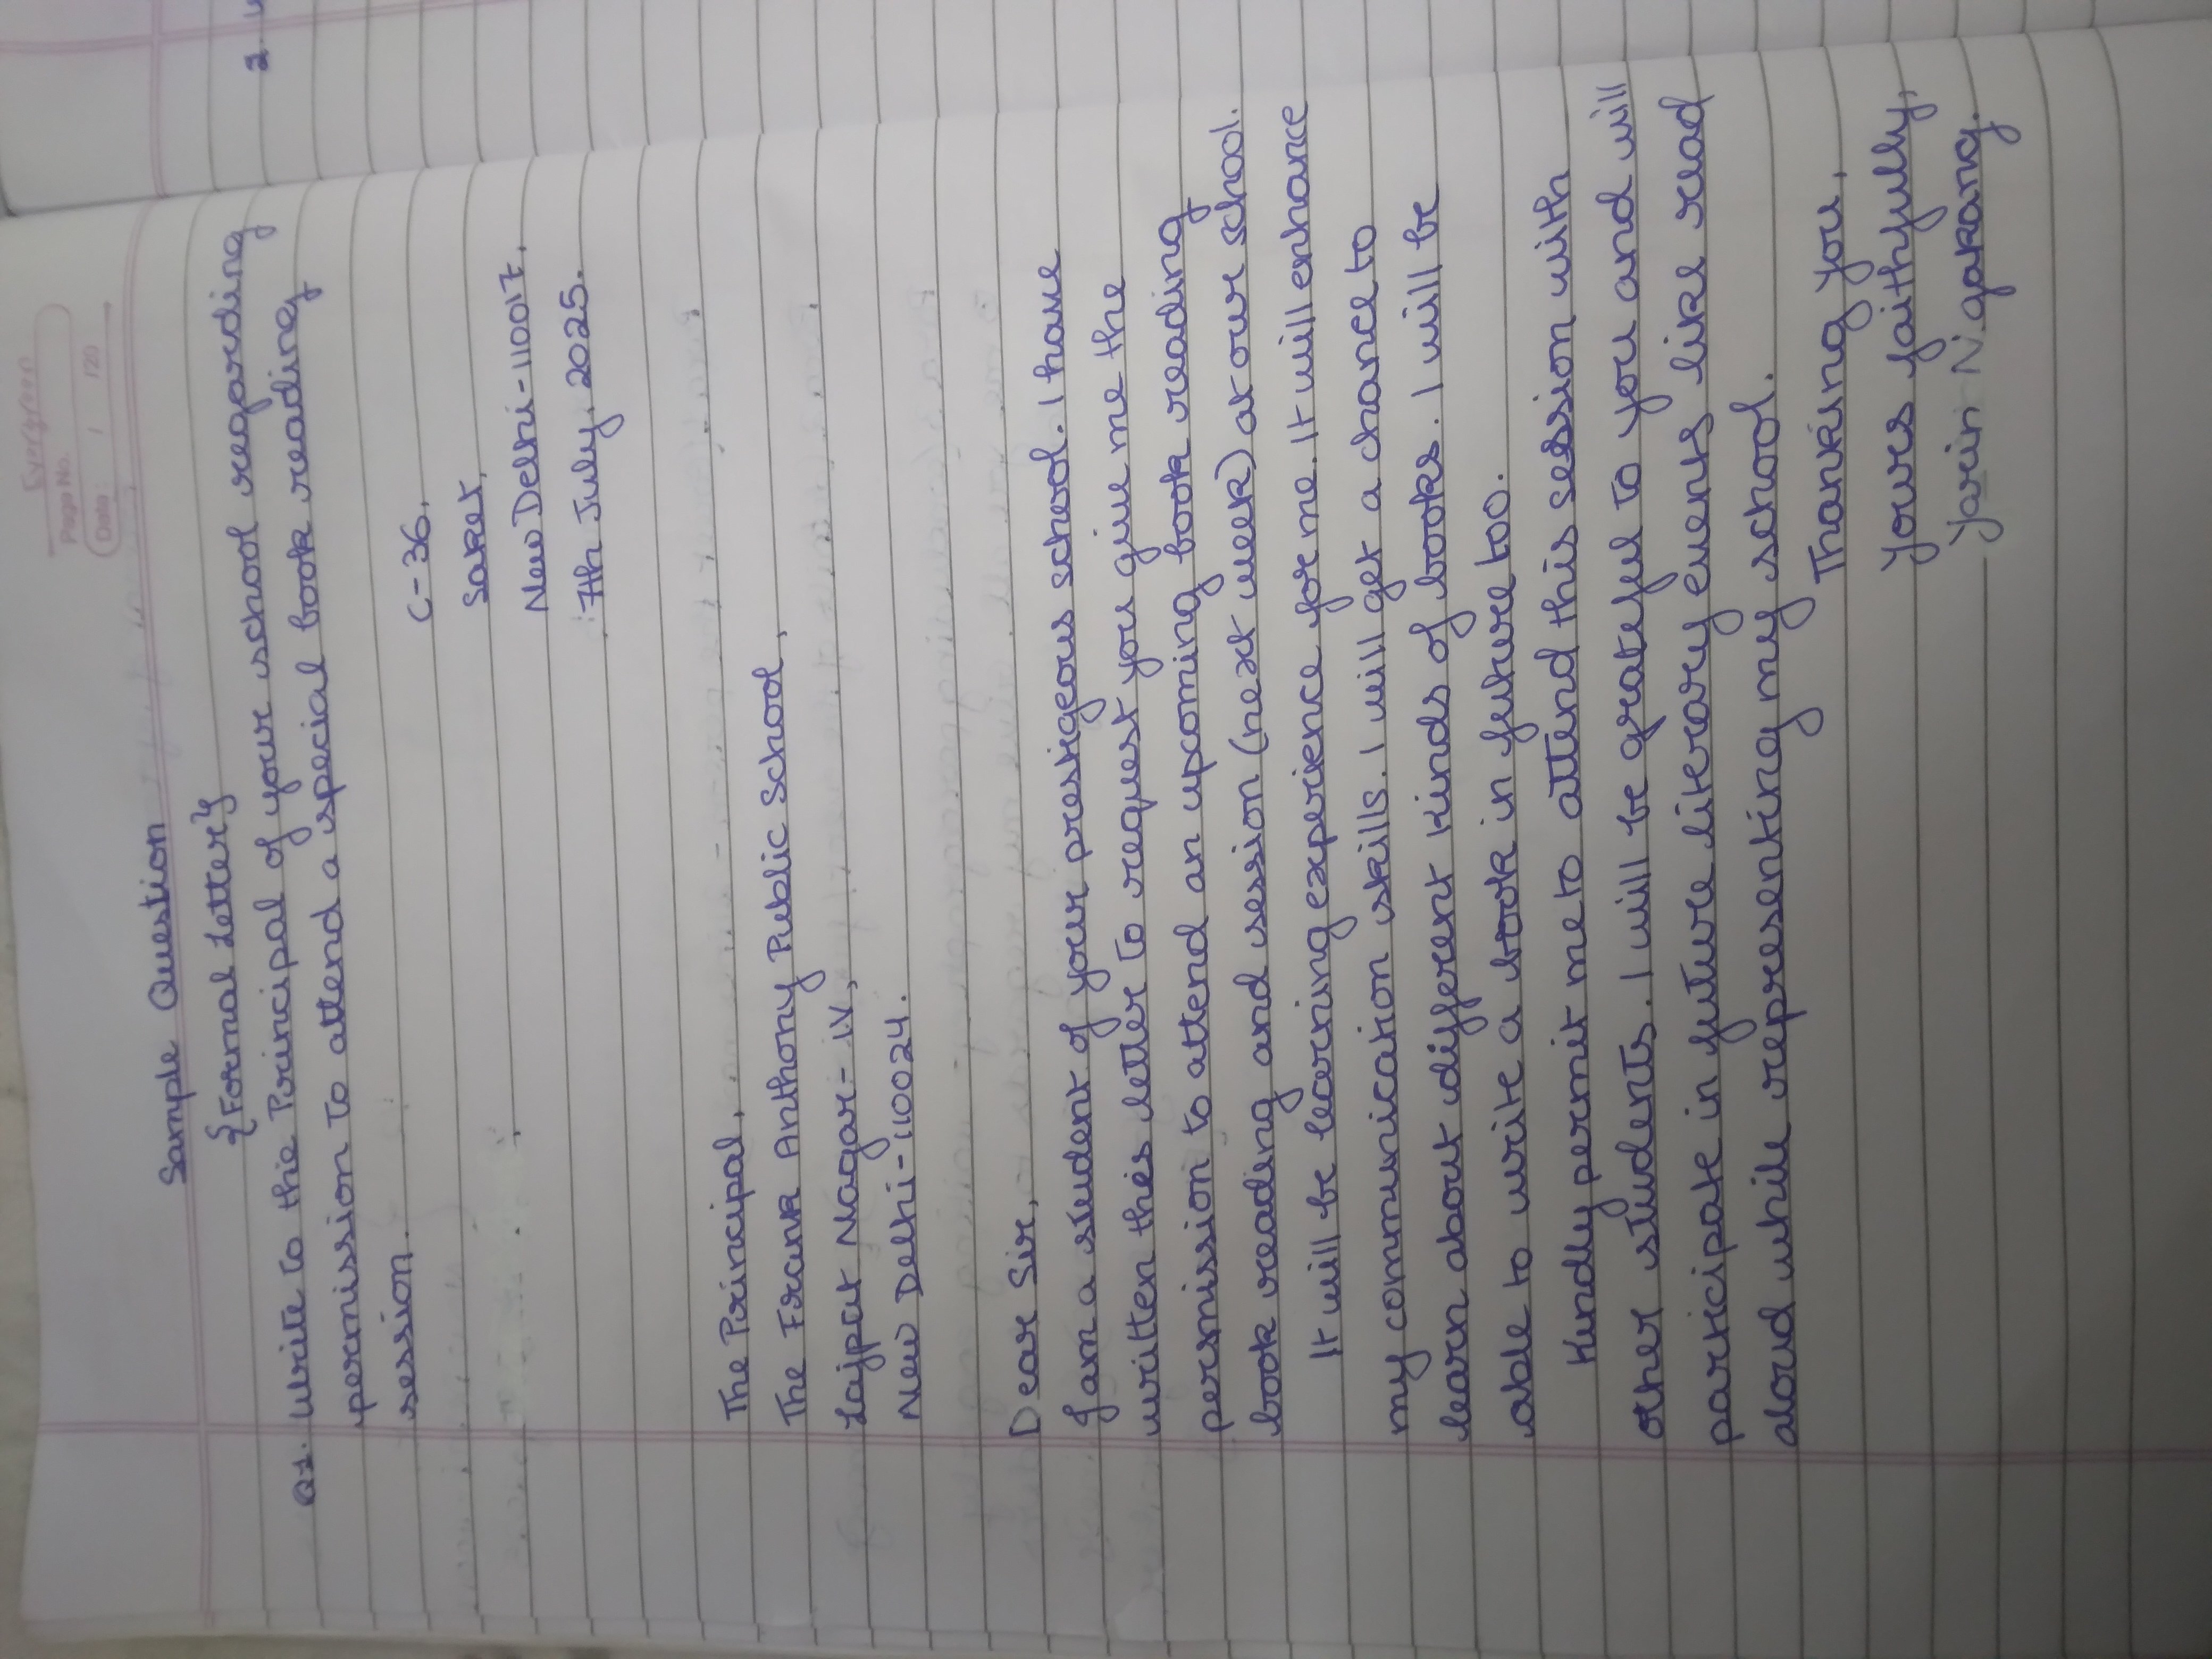 Evergreen
Page No.
Date: / /20
Sample Question
{Formal Letter}
Q1. Write to the Principal of your school regarding
permission to attend a special book reading
session.
C-36,
Saket,
New Delhi-110017,
7th July, 2025.
The Principal,
The Frank Anthony Public School,
Lajpat Nagar-IV,
New Delhi-110024.
Dear Sir,
I am a student of your prestigeous school. I have
written this letter to request you give me the
permission to attend an upcoming book reading
book reading and session (next week) at our school.
It will be learning experience for me. It will enhance
my communication skills. I will get a chance to
learn about different kinds of books. I will be
able to write a book in future too.
Kindly permit me to attend this session with
other students. I will be grateful to you and will
participate in future literary events like read
aloud while representing my school.
Thanking you,
Yours faithfully,
Yarin N.
2